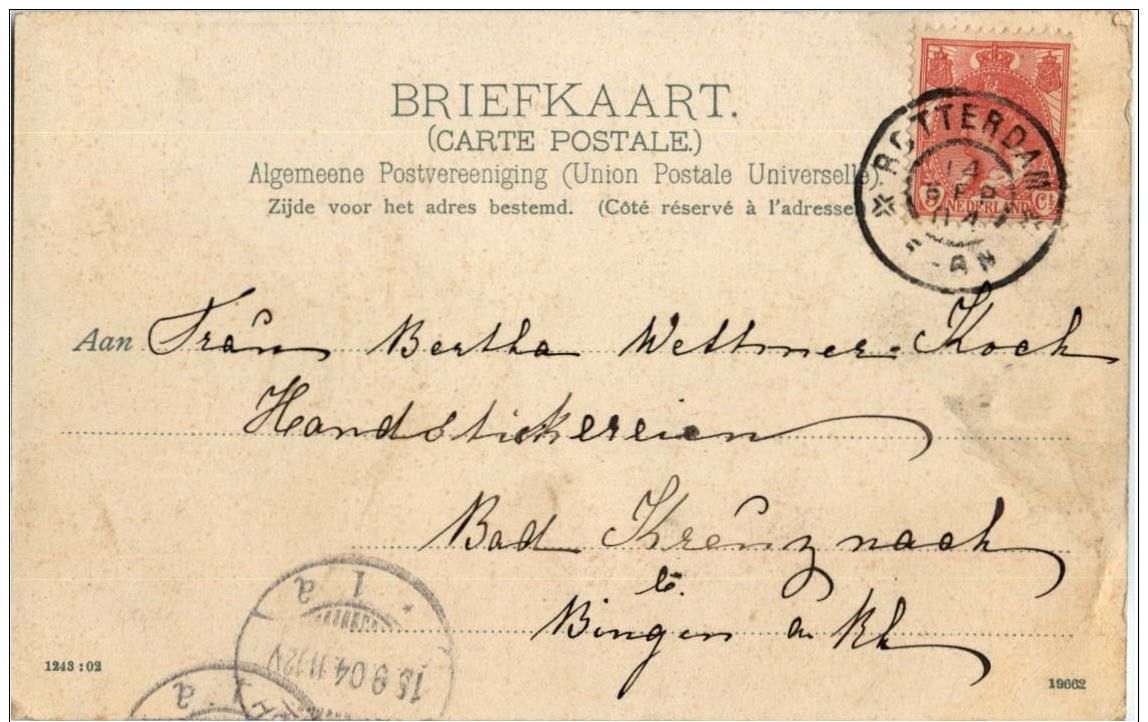 BRIEFKAART.
(CARTE POSTALE.)
Algemeene Postvereeniging (Union Postale Universelle)
Zijde voor het adres bestemd. (Côté réservé à l'adresse
ROTTERDAM
14
SEP
11
NEDERLAND
5 Ct
Aan Fraŭ Bertha Wettmer-Koch
Handstickereien
Bad Kreŭznach
b.
Bingen a Rh
1 a
15 9 04 11-12V
a
1243:02
19662